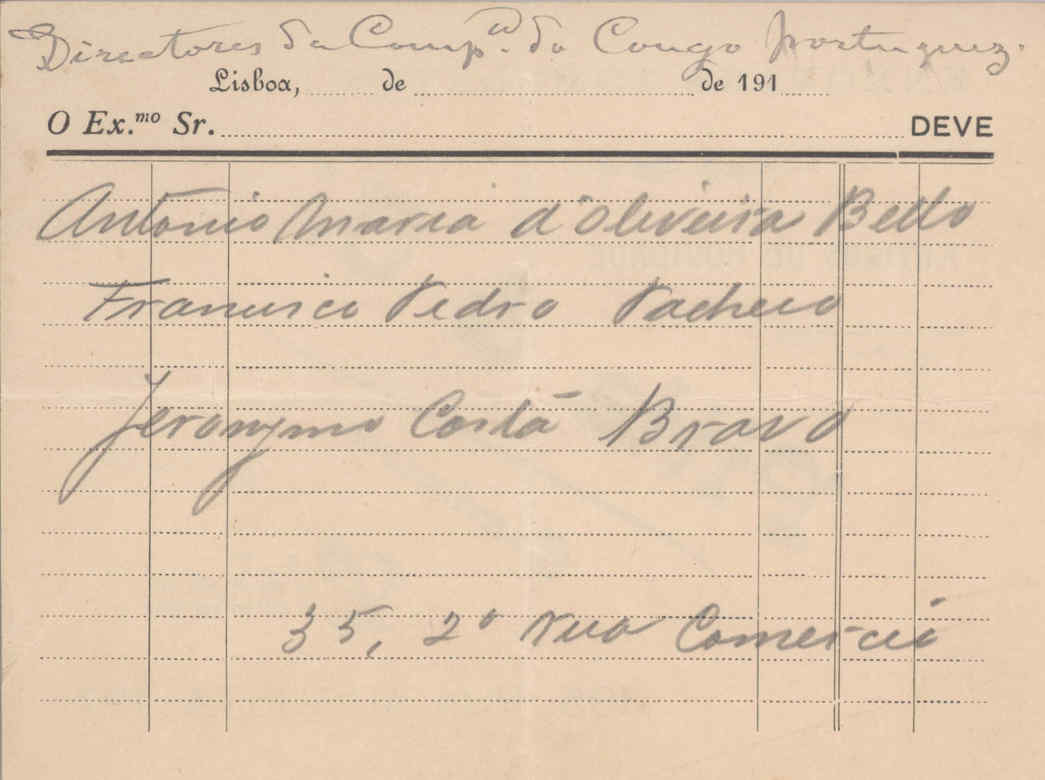 Directores da Comp.ª do Congo Portuguez.
Lisboa, de de 191
O Ex.mo Sr. DEVE
Antonio Maria d'Oliveira Bello
Francisco Pedro Pacheco
Jeronymo Costa Bravo
35, 2º Rua Comercio